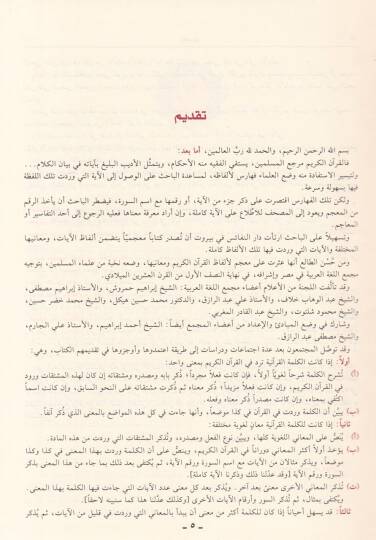 تقديم
بسم الله الرحمن الرحيم، والحمد لله ربّ العالمين، أما بعد:
فالقرآن الكريم مرجع المسلمين، يستقي الفقيه منه الأحكام، ويتمثّل الأديب البليغ بآياته في بيان الكلام...
ولتيسير الاستفادة منه وضع العلماء فهارس لألفاظه، لمساعدة الباحث على الوصول إلى الآية التي وردت تلك اللفظة
فيها بسهولة وسرعة.
ولكن تلك الفهارس اقتصرت على ذكر جزء من الآية، أو رقمها مع اسم السورة، فيضطر الباحث أن يأخذ الرقم
من المعجم ويعود إلى المصحف للاطّلاع على الآية كاملة، وإن أراد معرفة معناها فعليه الرجوع إلى أحد التفاسير أو
المعاجم.
وتسهيلاً على الباحث ارتأت دار النفائس في بيروت أن تُصدر كتاباً معجميّاً يتضمن ألفاظ الآيات، ومعانيها
المختلفة والآيات التي وردت فيها تلك الألفاظ كاملة.
ومن حُسن الطالع أنها عثرت على معجم لألفاظ القرآن الكريم ومعانيها، وضعه نخبة من علماء المسلمين، بتوجيه
مجمع اللغة العربية في مصر وإشرافه، في نهاية النصف الأول من القرن العشرين الميلادي.
وقد تألّفت اللجنة من الأعلام أعضاء مجمع اللغة العربية: الشيخ إبراهيم حمروش، والأستاذ إبراهيم مصطفى،
والشيخ عبد الوهاب خلاف، والأستاذ علي عبد الرازق، والدكتور محمد حسين هيكل، والشيخ محمد خضر حسين،
والشيخ محمود شلتوت، والشيخ عبد القادر المغربي.
وشارك في وضع المبادئ والإعداد من أعضاء المجمع أيضاً: الشيخ أحمد إبراهيم، والأستاذ علي الجارم،
والشيخ مصطفى عبد الرازق.
وقد توصّل المجتمعون بعد عدة اجتماعات ودراسات إلى طريقة اعتمدوها وأوجزوها في تقديمهم الكتاب، وهي:
أولاً: إذا كانت الكلمة القرآنية ترد في القرآن الكريم بمعنى واحد:
(أ) تُشرح الكلمة شرحاً لغويّاً أولاً، فإن كانت فعلاً مجرداً؛ ذُكر بابه ومصدره ومشتقاته إن كان لهذه المشتقات ورود
في القرآن الكريم، وإن كانت فعلاً مزيداً؛ ذُكر معناه ثم ذُكرت مشتقاته على النحو السابق، وإن كانت اسماً
اكتُفي بمعناه، وإن كانت مصدراً ذُكر معناه وفعله.
(ب) يبيَّن أن الكلمة وردت في القرآن في كذا موضعاً، وأنها جاءت في كل هذه المواضع بالمعنى الذي ذُكر آنفاً.
ثانياً: إذا كانت للكلمة القرآنية معانٍ لغوية مختلفة:
(أ) يُنصّ على المعاني اللغوية كلها، ويبيَّن نوع الفعل ومصدره، وتُذكر المشتقات التي وردت من هذه المادة.
(ب) يؤخذ أولاً أكثر المعاني دوراناً في القرآن الكريم، وينصّ على أن الكلمة وردت بهذا المعنى في كذا وكذا
موضعاً، ويذكر مثالان من الآيات مع اسم السورة ورقم الآية، ثم يكتفى بعد ذلك بما جاء من هذا المعنى بذكر
السورة ورقم الآية [وقد عدّلنا ذلك وذكرنا الآية كاملة].
(ت) تُذكر المعاني الأخرى معنىً بعد آخر، ويُذكر بعد كل معنى عدد الآيات التي جاءت فيها الكلمة بهذا المعنى
ويكتفى بمثال، ثم تُذكر السور وأرقام الآيات الأخرى [وكذلك عدّلنا هذا كما سنبينه لاحقاً].
ثالثاً: قد يسهل أحياناً إذا كان للكلمة أكثر من معنى أن يبدأ بالمعاني التي وردت في قليل من الآيات، ثم يُذكر
- ٥ -